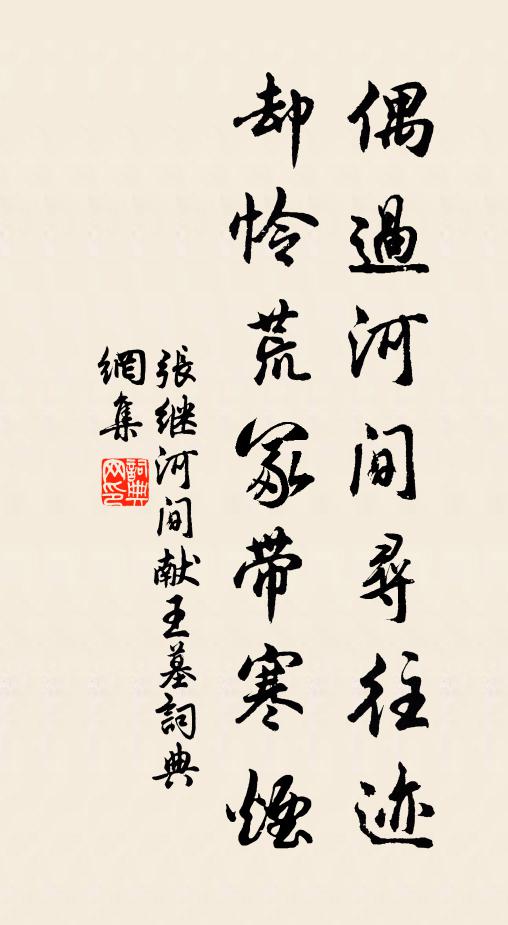 偶過河间尋往迹
却怜荒冢带寒煙
張继河间献王墓詞典
網集
詞典
网印